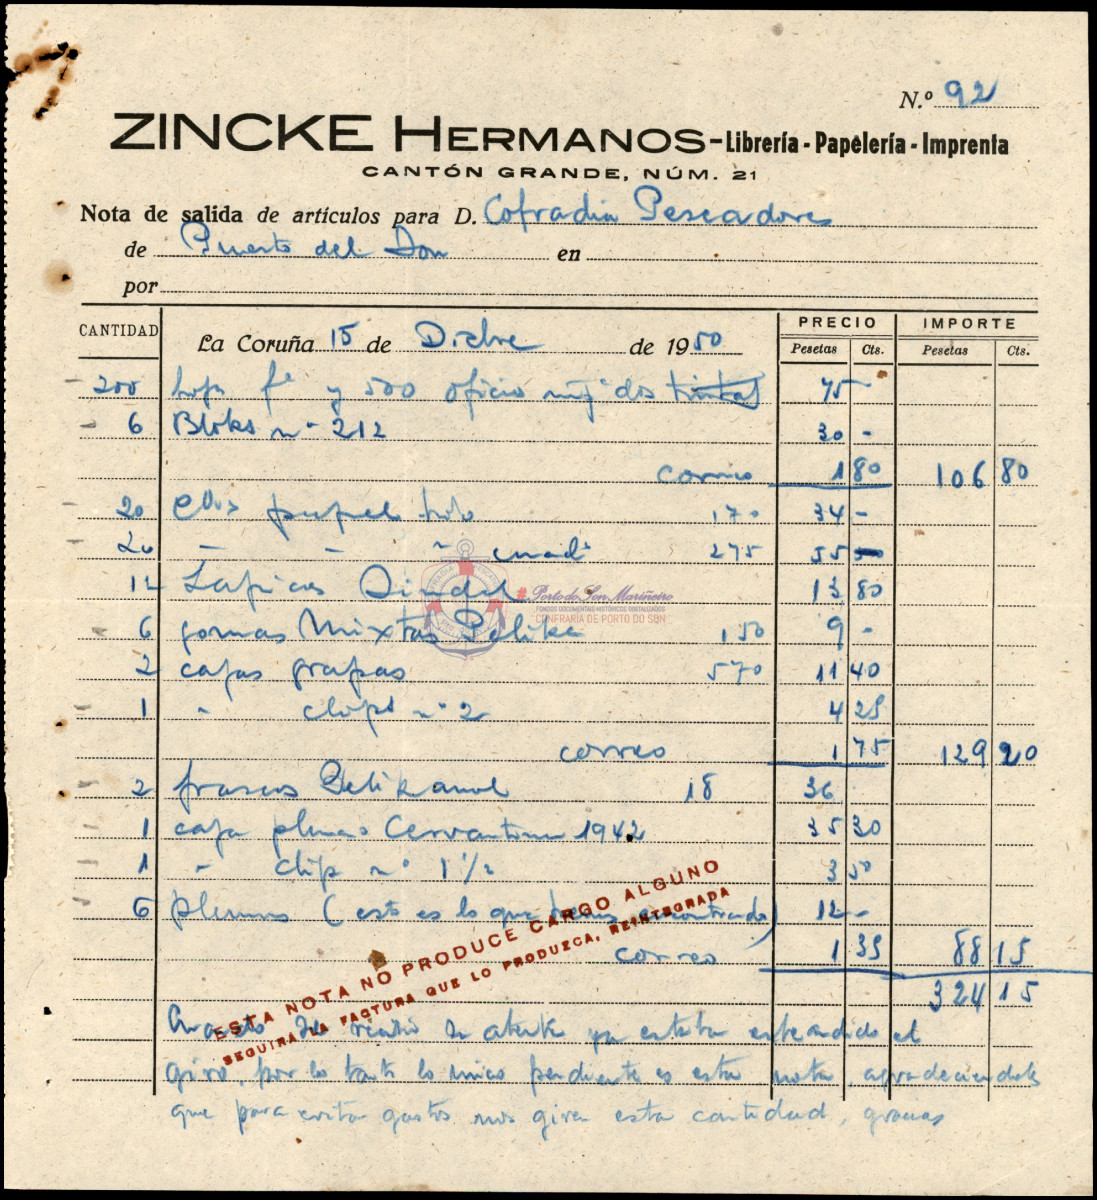 N.º 92
ZINCKE HERMANOS - Librería - Papelería - Imprenta
CANTÓN GRANDE, NÚM. 21
Nota de salida de artículos para D. Cofradia Pescadores
de Puerto del Son en
por
CANTIDAD La Coruña 15 de Dicbre de 1950 PRECIO IMPORTE
Pesetas Cts. Pesetas Cts.
200 hojas fº y 500 oficio dos tintas 75 -
6 Bloks nº 212 30 -
correo 1 80 106 80
20 papel hilo 170 34 -
20 - - - cuadº 275 55 -
12 Lapices Dindel 13 80
6 gomas Mixtas Pelikan 150 9 -
2 cajas grapas 570 11 40
1 " clips nº 2 4 25
correo 1 75 129 20
2 frascos Pelikanol 18 36
1 caja plumas Cervantina 1942 35 30
1 " clip nº 1 1/2 3 50
6 plumas (esto es lo que hemos encontrado) 12 -
correo 1 35 88 15
324 15
ESTA NOTA NO PRODUCE CARGO ALGUNO
SEGUIRA LA FACTURA QUE LO PRODUZCA, REINTEGRADA
de recibir su atenta ya estaba extendido el
giro, por lo tanto lo unico pendiente es esta nota, agradeciendoles
que para evitar gastos nos giren esta cantidad, gracias
COFRADIA PESCADORES
# Porto do Son Mariñeiro
FONDOS DOCUMENTAIS HISTÓRICOS DIXITALIZADOS
CONFRARÍA DE PORTO DO SON